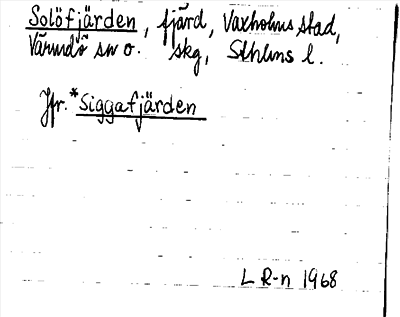 Solöfjärden, fjärd, Vaxholms stad,
Värmdö sn o. skg, Sthlms l.
Jfr. *Siggafjärden
L R-n 1968